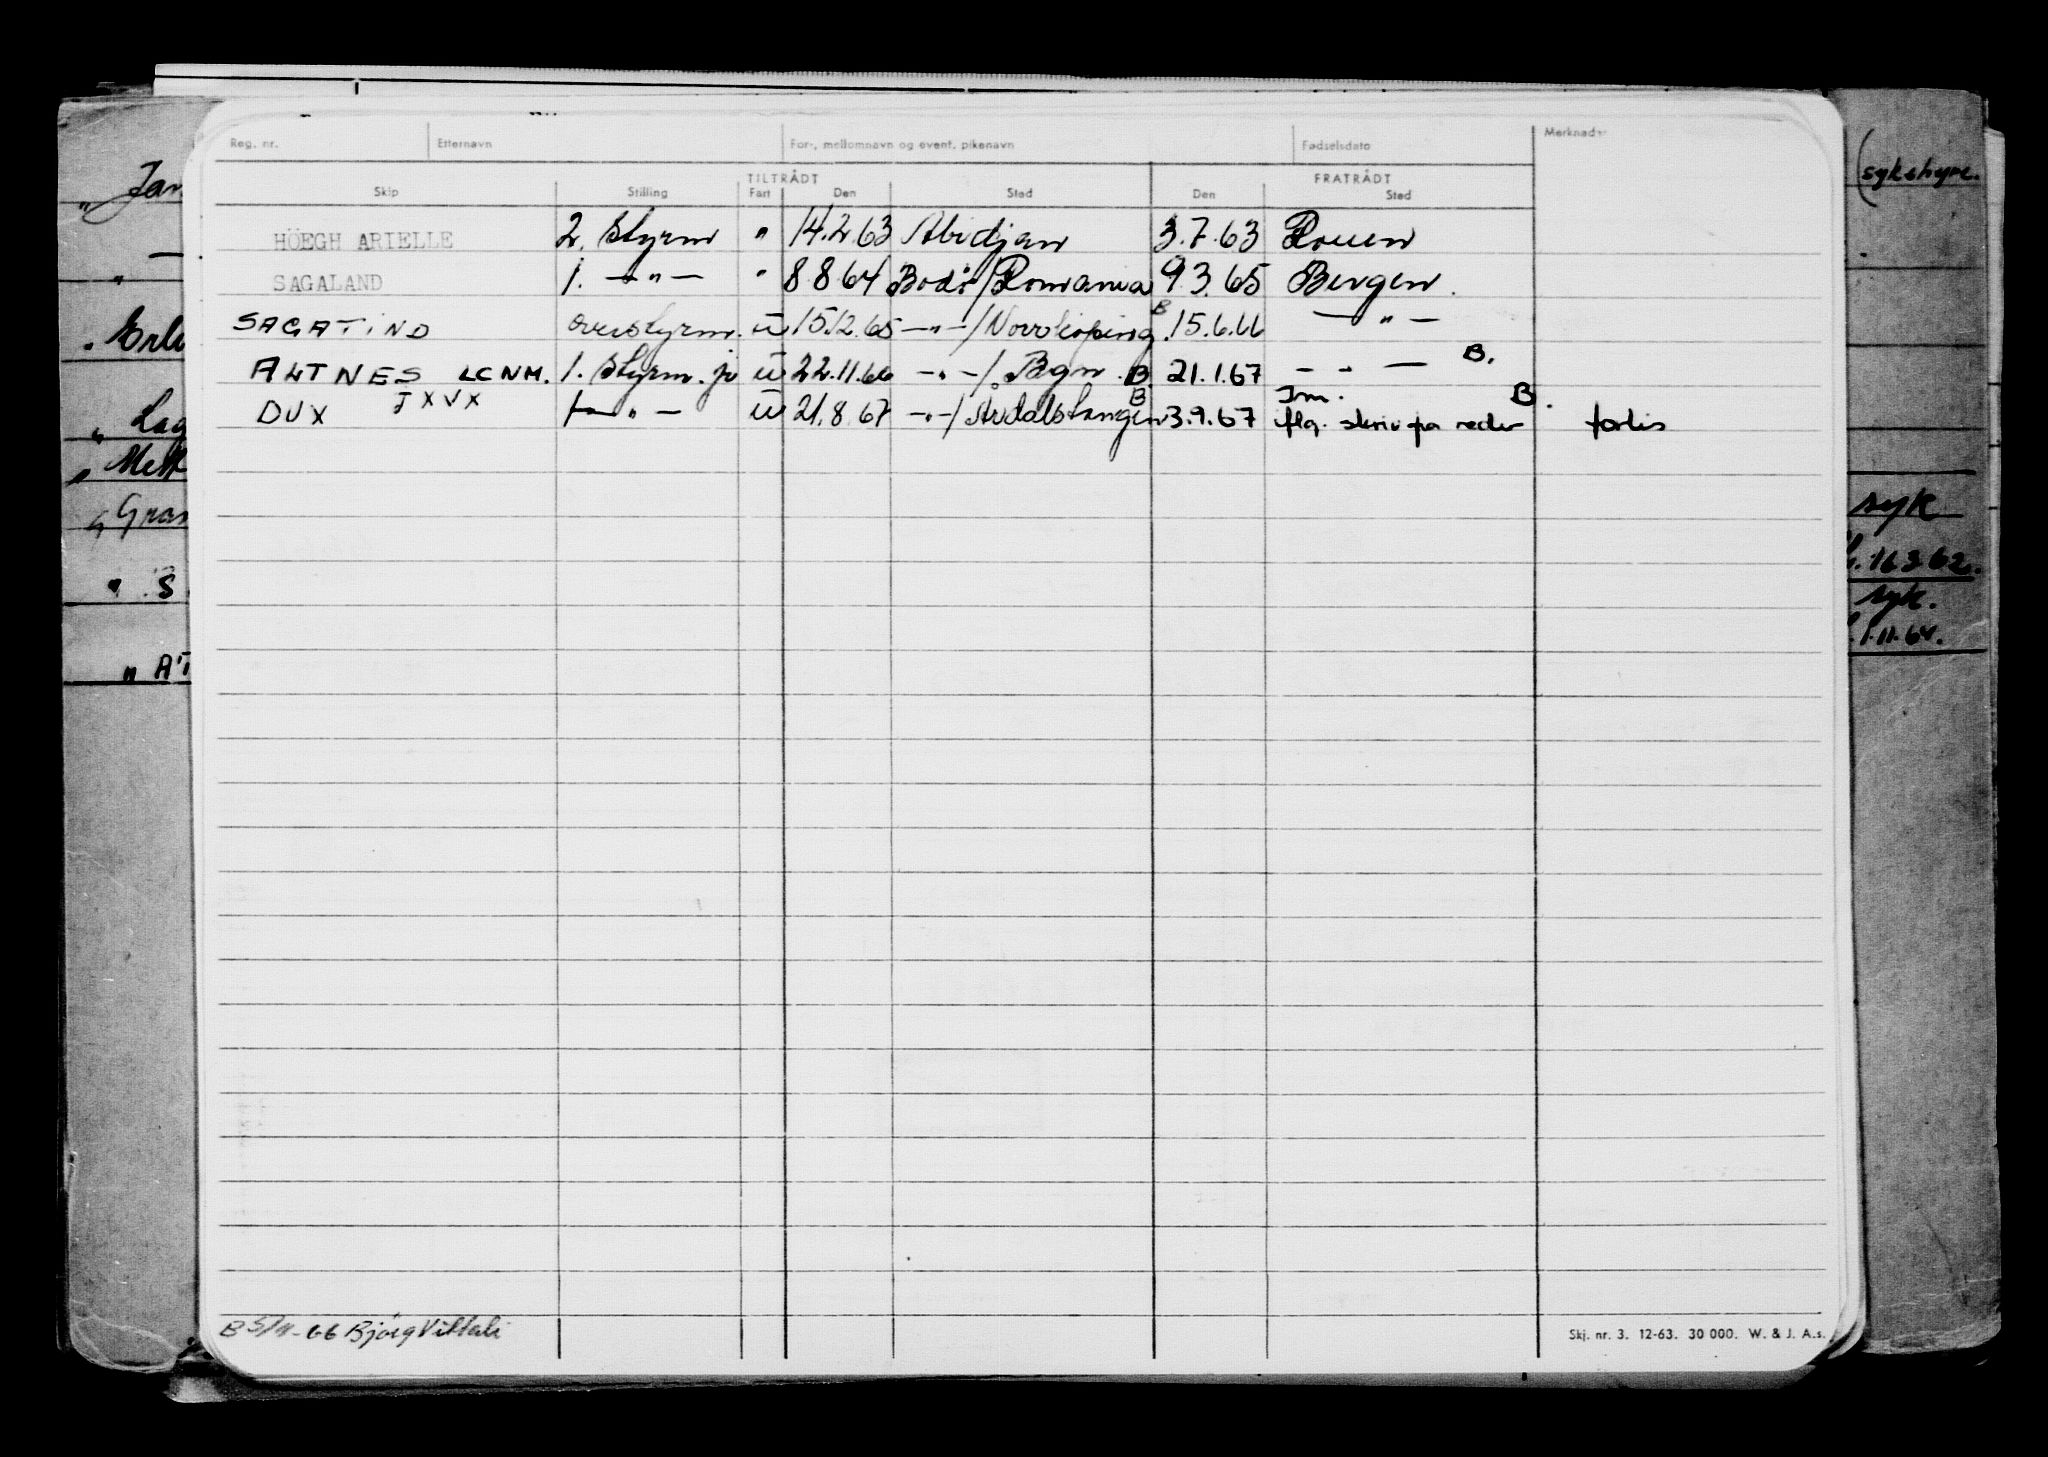 Reg. nr. Etternavn For-, mellomnavn og event. pikenavn Fødselsdato Merknader
TILTRÅDT FRATRÅDT
Skip Stilling Fart Den Sted Den Sted
HÖEGH ARIELLE 2. Styrm " 14.2.63 Abidjan 3.7.63 Rouen
SAGALAND 1. -"- " 8.8.64 Bodø/Romania 9.3.65 Bergen.
SAGATIND overstyrm. u 15.12.65 -"-/Norrköping B. 15.6.66 -"-
ALTNES LCNM. 1. Styrm. jr u 22.11.66 -"-/Bgn. B. 21.1.67 -"- B.
DUX JXVX 1 -"- u 21.8.67 -"-/Årdalstangen B 3.9.67 Im. B.
iflg. skriv fra reder forlis
(sykehyre.
"Jan
"
. Erli
" Lag
" Mett
" Gran
syk
.16.3.62.
" S
syk.
.1.11.64.
" AT
B 5/11-66 Bjørg Vittali
Skj. nr. 3. 12-63. 30 000. W. & J. A.s.